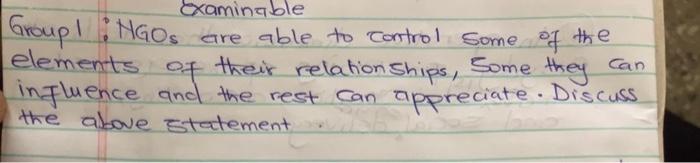 Examinable
Group 1 : NGOs are able to control some of the
elements of their relationships, Some they can
influence and the rest can appreciate. Discuss
the above statement.